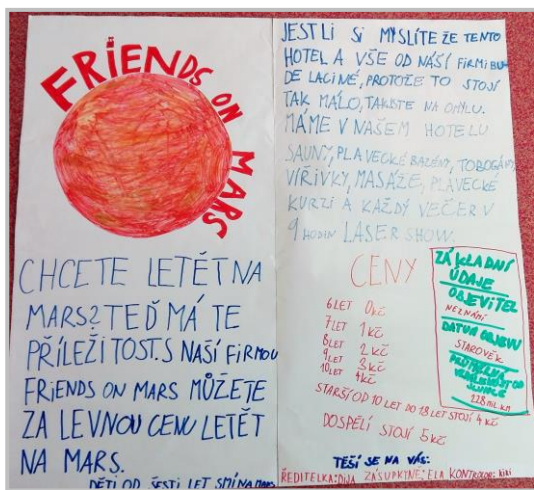 FRIENDS ON MARS
CHCETE LETĚT NA
MARS? TEĎ MÁTE
PŘÍLEŽITOST. S NAŠÍ FIRMOU
FRIENDS ON MARS MŮŽETE
ZA LEVNOU CENU LETĚT
NA MARS.
DĚTI OD ŠESTI LET SMÍ NA MARS
JESTLI SI MYSLÍTE ŽE TENTO
HOTEL A VŠE OD NÁŠÍ FIRMI BU-
DE LACINÉ, PROTOŽE TO STOJÍ
TAK MÁLO, TAK JSTE NA OMYLU.
MÁME V NAŠEM HOTELU
SAUNY, PLAVECKÉ BAZÉNY, TOBOGÁNY,
VÍŘIVKY, MASÁŽE, PLAVECKÉ
KURZI A KAŽDÝ VEČER V
9 HODIN LASER SHOW.
CENY
6 LET 0 Kč
7 LET 1 Kč
8 LET 2 Kč
9 LET 3 Kč
10 LET 4 Kč
STARŠÍ OD 10 LET DO 18 LET STOJÍ 4 Kč
DOSPĚLÍ STOJÍ 5 Kč
ZÁKLADNÍ
ÚDAJE
OBJEVITEL
NEZNÁMÍ
DATUM OBJEVU
STAROVĚK
VZDÁLENOST OD
SLUNCE
228 MIL. KM
TĚŠÍ SE NA VÁS:
ŘEDITELKA: ZÁSUPKYNĚ: ELA KONTROLOR: KIKI